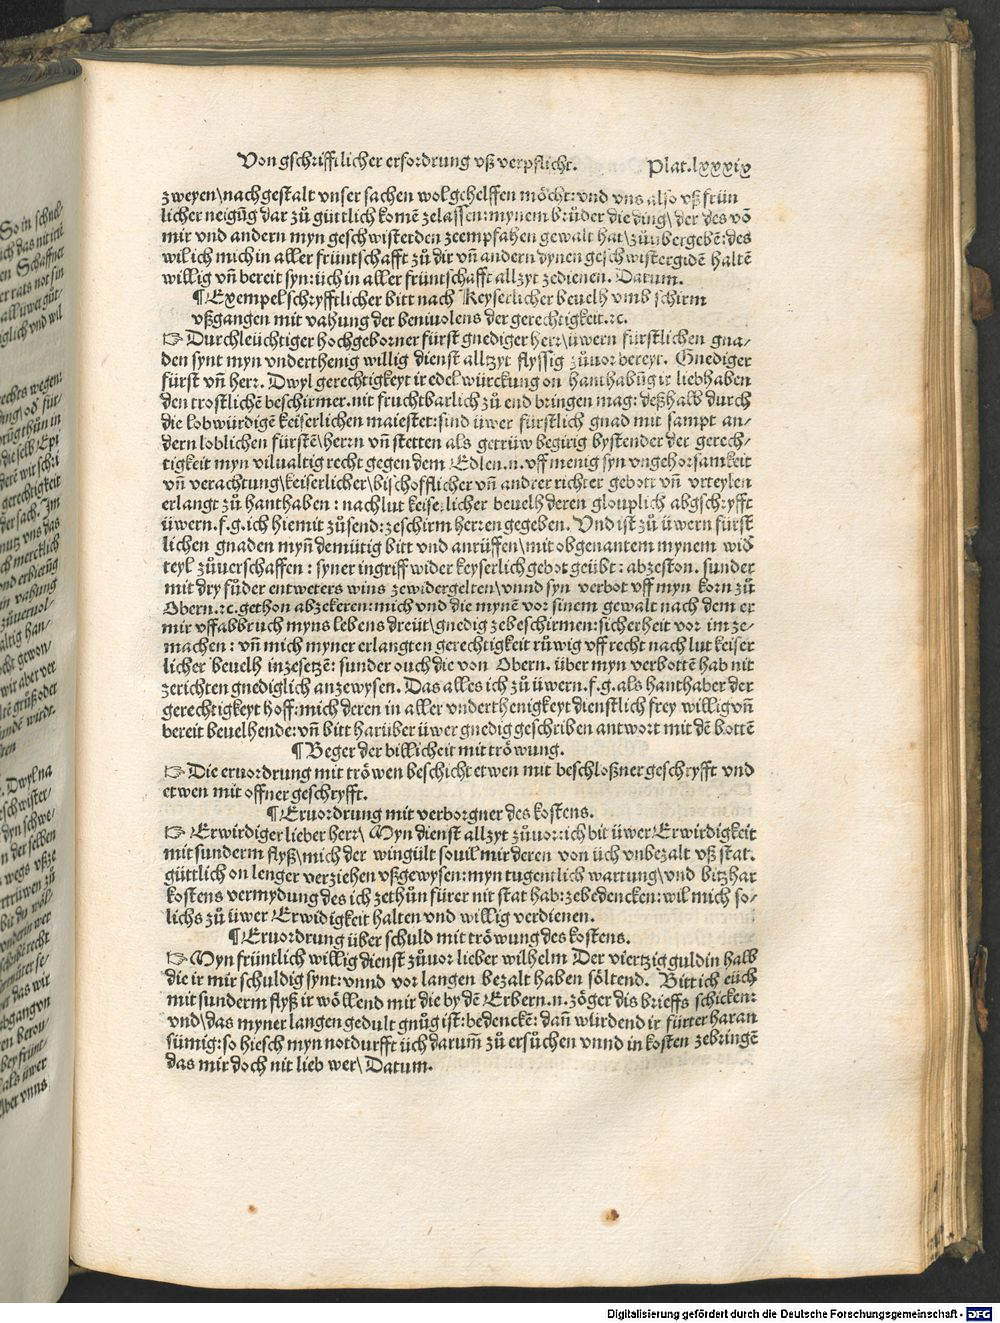 Von gschrifftlicher erfordrung vß verpflicht. Plat.lxxxix
zweyen\nachgestalt vnser sachen wol gehelffen möcht: vnd vns also vß frün
licher neigūg dar zů güttlich komē zelassen: mynem brüder die ding\ der des vō
mir vnd andern myn geschwisterden zeempfahen gewalt hat\ zůubergebē: des
wil ich mich in aller früntschafft zů dir vn̄ andern dynen geschwistergidē haltē
willig vn̄ bereit syn: üch in aller früntschafft allzyt zedienen. Datum.
¶ Exempel schryfftlicher bitt nach Keyserlicher beuelh vmb schirm
vßgangen mit vahung der beniuolens der gerechtigkeit.⁊c.
☞ Durchleüchtiger hochgeborner fürst gnediger herr\ üwern fürstlichen gna⸗
den synt myn vnderthenig willig dienst alltzyt flyssig zůuor bereyt. Gnediger
fürst vn̄ herr. Dwyl gerechtigkeyt ir edel würckung on hanthabūg ir liebhaben
den trostlichē beschirmer. nit fruchtbarlich zů end bringen mag: deßhalb durch
die lobwürdigē keiserlichen maiestet: sind üwer fürstlich gnad mit sampt an⸗
dern loblichen fürstē\ herrn vn̄ stetten als getrüw begirig bystender der gerech⸗
tigkeit myn viluatig recht gegen dem Edlen.n. vff menig syn vngehorsamkeit
vn̄ verachtung\ keiserlicher\ bischofflicher vn̄ andrer richter gebott vn̄ vrteylen
erlangt zů hanthaben: nachlut keiserlicher beuelh deren glouplich abgschryfft
üwern.f.g. ich hiemit zůsend: zeschirm herren gegeben. Vnd ist zů üwern fürst
lichen gnaden myn̄ demütig bitt vnd anrüffen\ mit obgenantem mynem wid
teyl zůuerschaffen: syner ingriff wider keyserlich gebot geübt: abzeston. sunder
mit dry fůder entweters wins zewidergelten\ vnnd syn verbot vff myn korn zů
Obern.⁊c. gethon abzekeren: mich vnd die mynē vor sinem gewalt nach dem er
mir vff abbruch myns lebens dreüt\ gnedig zebeschirmen: sicherheit vor im ze⸗
machen: vn̄ mich myner erlangten gerechtigkeit rüwig vff recht nach lut keiser
licher beuelh inzesetzē: sunder ouch die von Obern. über myn verbottē hab nit
zerichten gnediglich anzewysen. Das alles ich zů üwern.f.g. als hanthaber der
gerechtigkeyt hoff: mich deren in aller vnderthenigkeyt dienstlich frey willig vn̄
bereit beuelhende: vn̄ bitt harüber üwer gnedig geschriben antwort mit dē bottē
¶ Beger der billicheit mit tröwung.
☞ Die eruordrung mit tröwen beschicht etwen mit beschloßner geschryfft vnd
etwen mit offner geschryfft.
¶ Eruordrung mit verborgner des kostens.
☞ Erwirdiger lieber herr\ Myn dienst allzyt zůuor: ich bit üwer Erwirdigkeit
mit sunderm flyß\ mich der wingült souil mir deren von üch vnbezalt vß stat.
güttlich on lenger verziehen vßgewysen: myn tugentlich wartung\ vnd bitz har
kostens vermydung des ich zethůn fürer nit stat hab: zebedencken: wil mich so⸗
lichs zů üwer Erwidigkeit halten vnd willig verdienen.
¶ Eruordrung über schuld mit tröwung des kostens.
☞ Myn früntlich willig dienst zůuor lieber wilhelm Der viertzig guldin halb
die ir mir schuldig synt: vnnd vor langen bezalt haben söltend. Bitt ich eüch
mit sunderm flyß ir wöllend mir die by dē Erbern.n. zöger dis brieffs schicken:
vnd\ das myner langen gedult gnůg ist: bedenckē: dan̄ würdend ir fürter haran
sümig: so hiesch myn notdurfft üch darum̄ zů ersůchen vnnd in kosten zebringē
das mir doch nit lieb wer\ Datum.
Digitalisierung gefördert durch die Deutsche Forschungsgemeinschaft - DFG